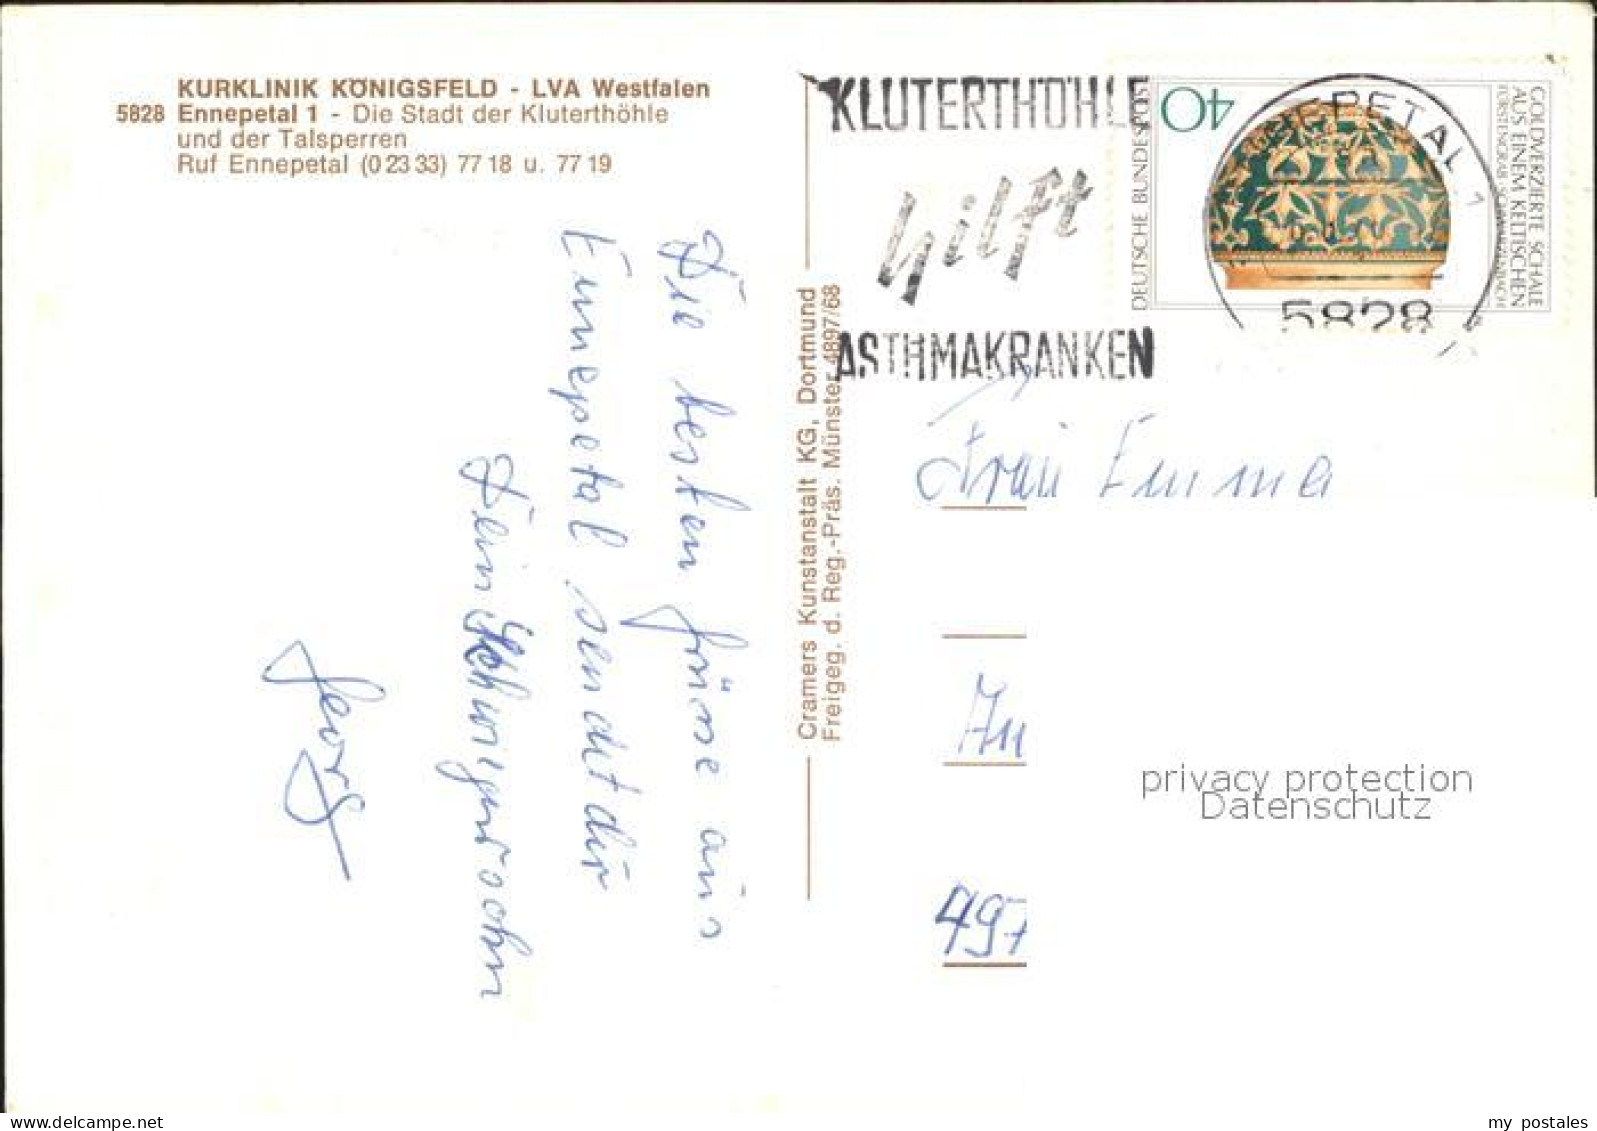 KURKLINIK KÖNIGSFELD - LVA Westfalen
5828 Ennepetal 1 - Die Stadt der Kluterthöhle
und der Talsperren
Ruf Ennepetal (0 23 33) 77 18 u. 77 19
Die besten Grüsse aus
Ennepetal sendet dir
Dein Schwiegersohn
Georg
Cramers Kunstanstalt KG, Dortmund
Freigeg. d. Reg.-Präs. Münster 4897/68
KLUTERTHÖHLE
hilft
ASTHMAKRANKEN
DEUTSCHE BUNDESPOST
40
GOLDVERZIERTE SCHALE
AUS EINEM KELTISCHEN
FÜRSTENGRAB · SCHWARZENBACH
ENNEPETAL 1
5828
Frau Emma
An
497
privacy protection
Datenschutz
delcampe.net
my postales